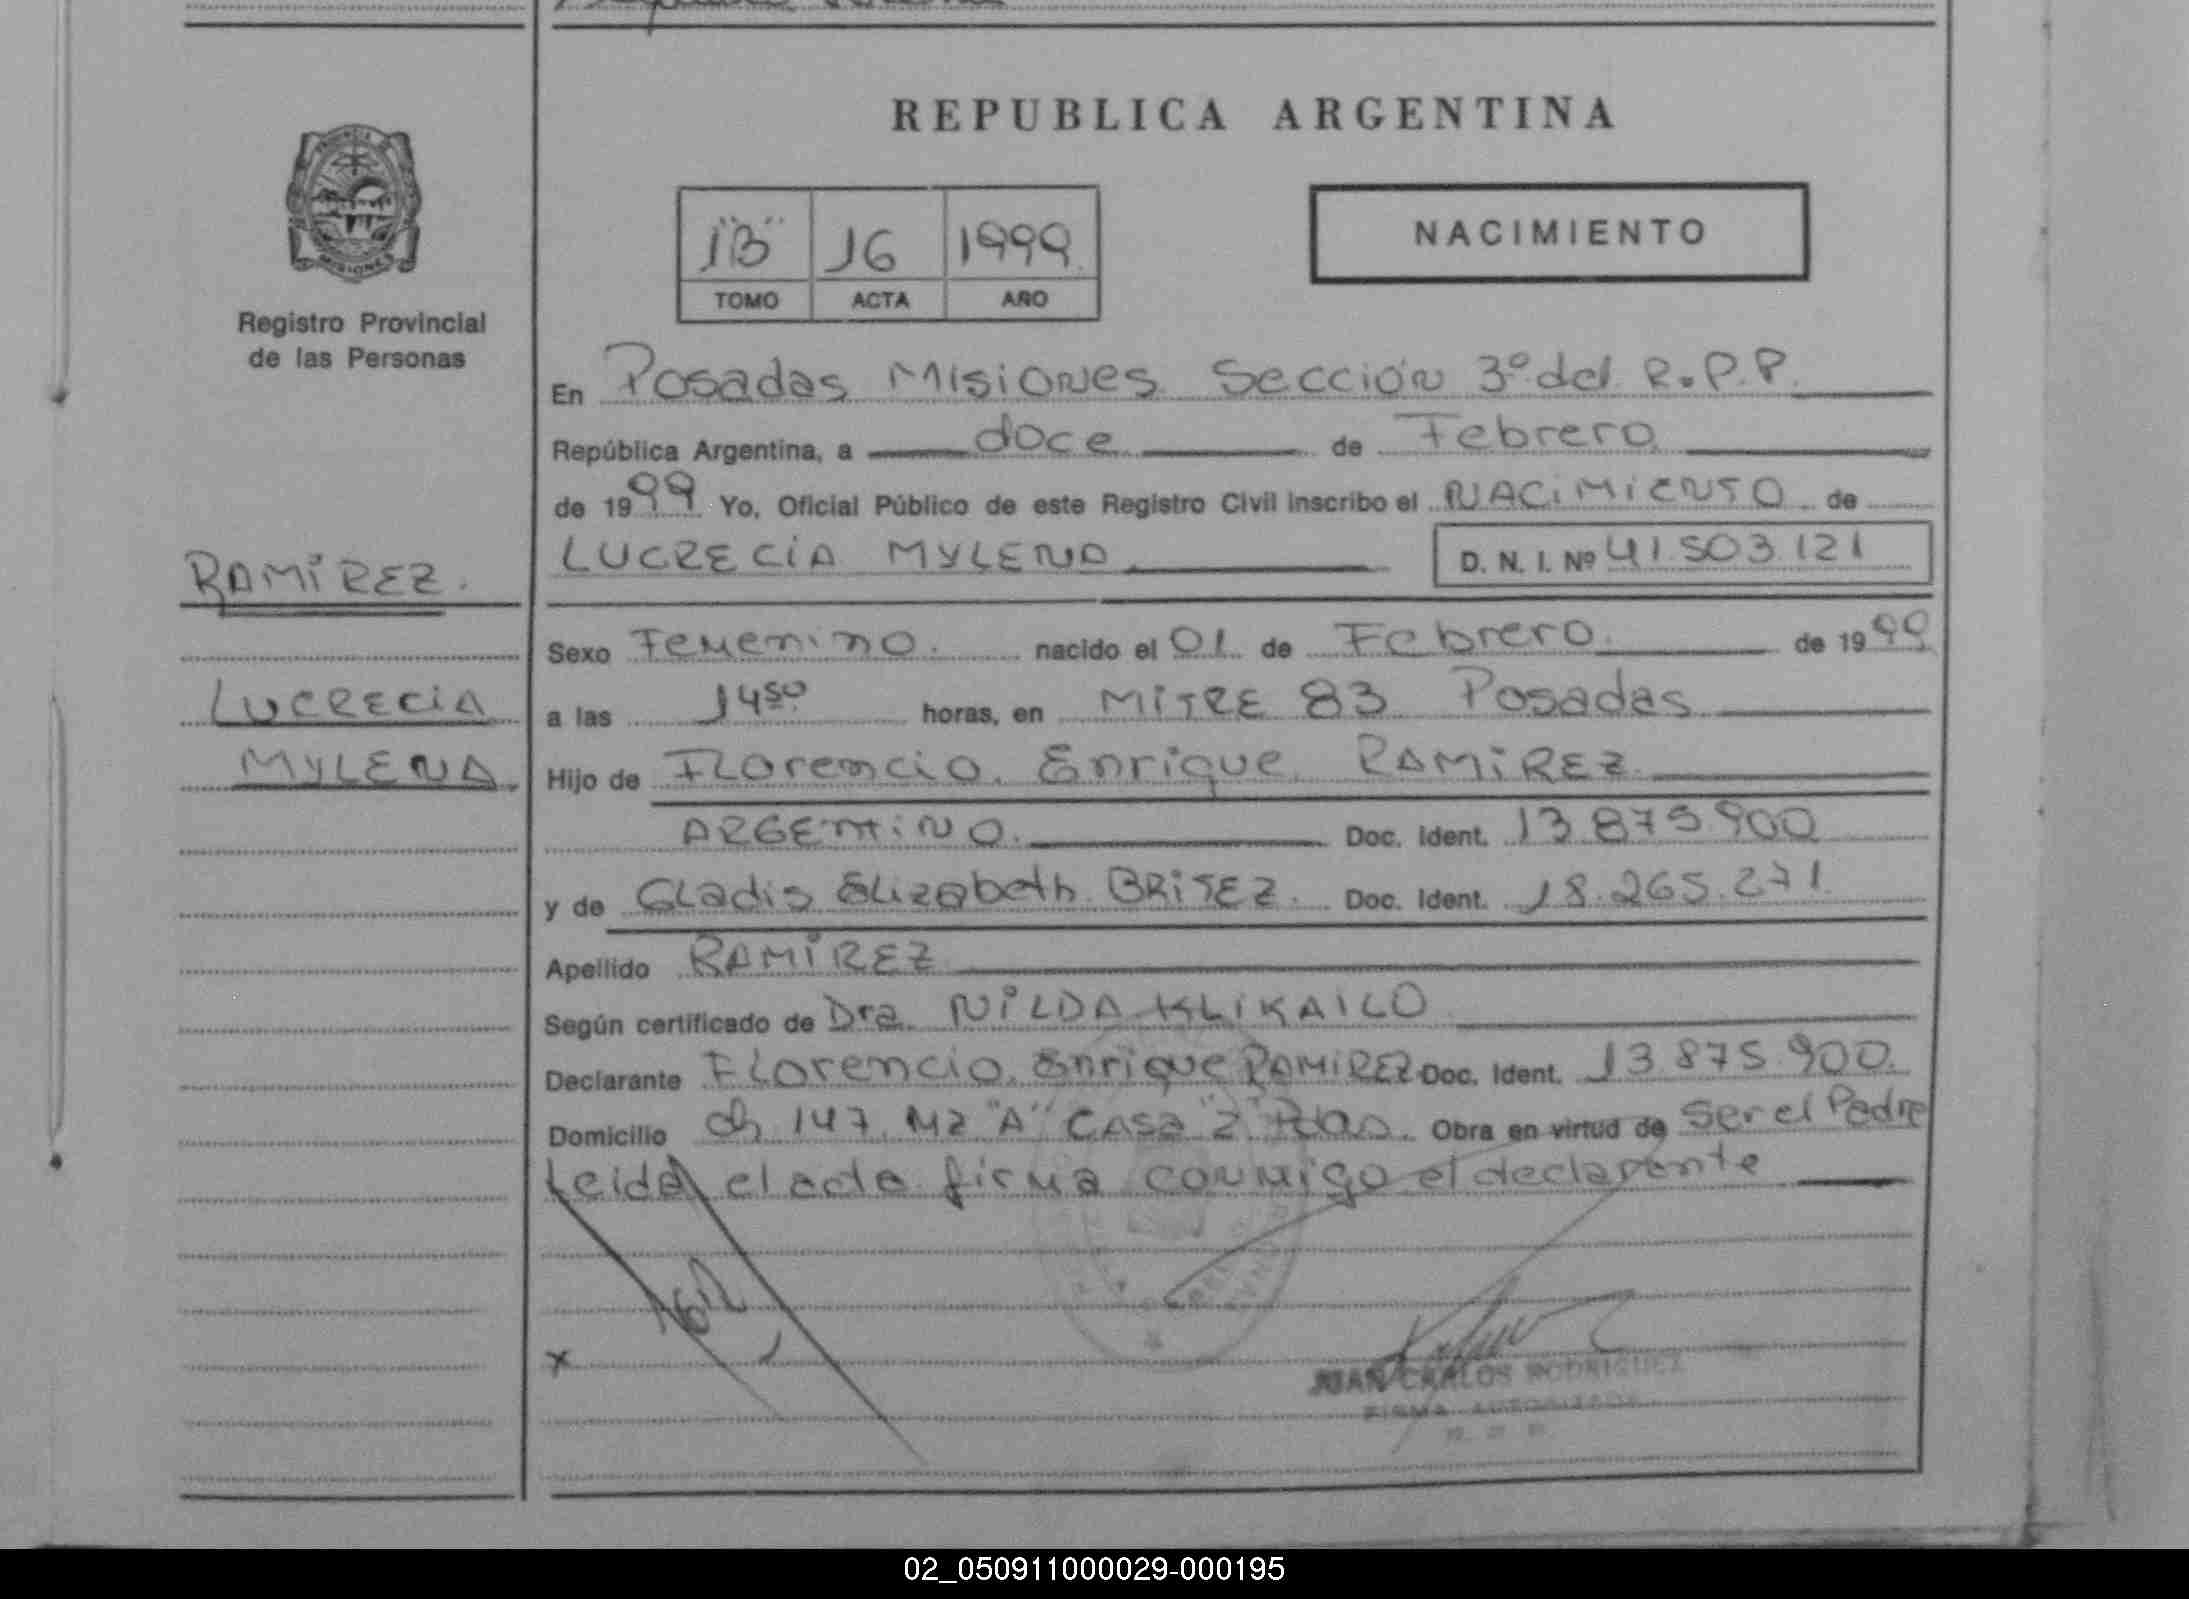 REPUBLICA ARGENTINA
PROVINCIA
MISIONES
Registro Provincial
de las Personas
"B" 16 1999
TOMO ACTA AÑO
NACIMIENTO
En Posadas Misiones Sección 3º del R.P.P.
República Argentina, a doce de Febrero
de 1999 Yo, Oficial Público de este Registro Civil inscribo el NACIMIENTO de
LUCRECIA MYLENA D. N. I. Nº 41.503.121
RAMIREZ.
LUCRECIA
MYLENA.
Sexo Femenino. nacido el 01 de Febrero de 1999
a las 14⁵⁰ horas, en MITRE 83 Posadas
Hijo de Florencio Enrique RAMIREZ
ARGENTINO. Doc. Ident. 13.875.900
y de Gladis Elizabeth BRITEZ. Doc. Ident. 18.265.271.
Apellido RAMIREZ
Según certificado de Dra. NILDA KLIKAILO
Declarante Florencio Enrique RAMIREZ Doc. Ident. 13.875.900.
Domicilio ch 147 Mz "A" CASA "2" Pdas. Obra en virtud de Ser el Padre
Leida el acta firma conmigo el declarante
x
JUAN CARLOS RODRIGUEZ
FIRMA AUTORIZADA
02_050911000029-000195